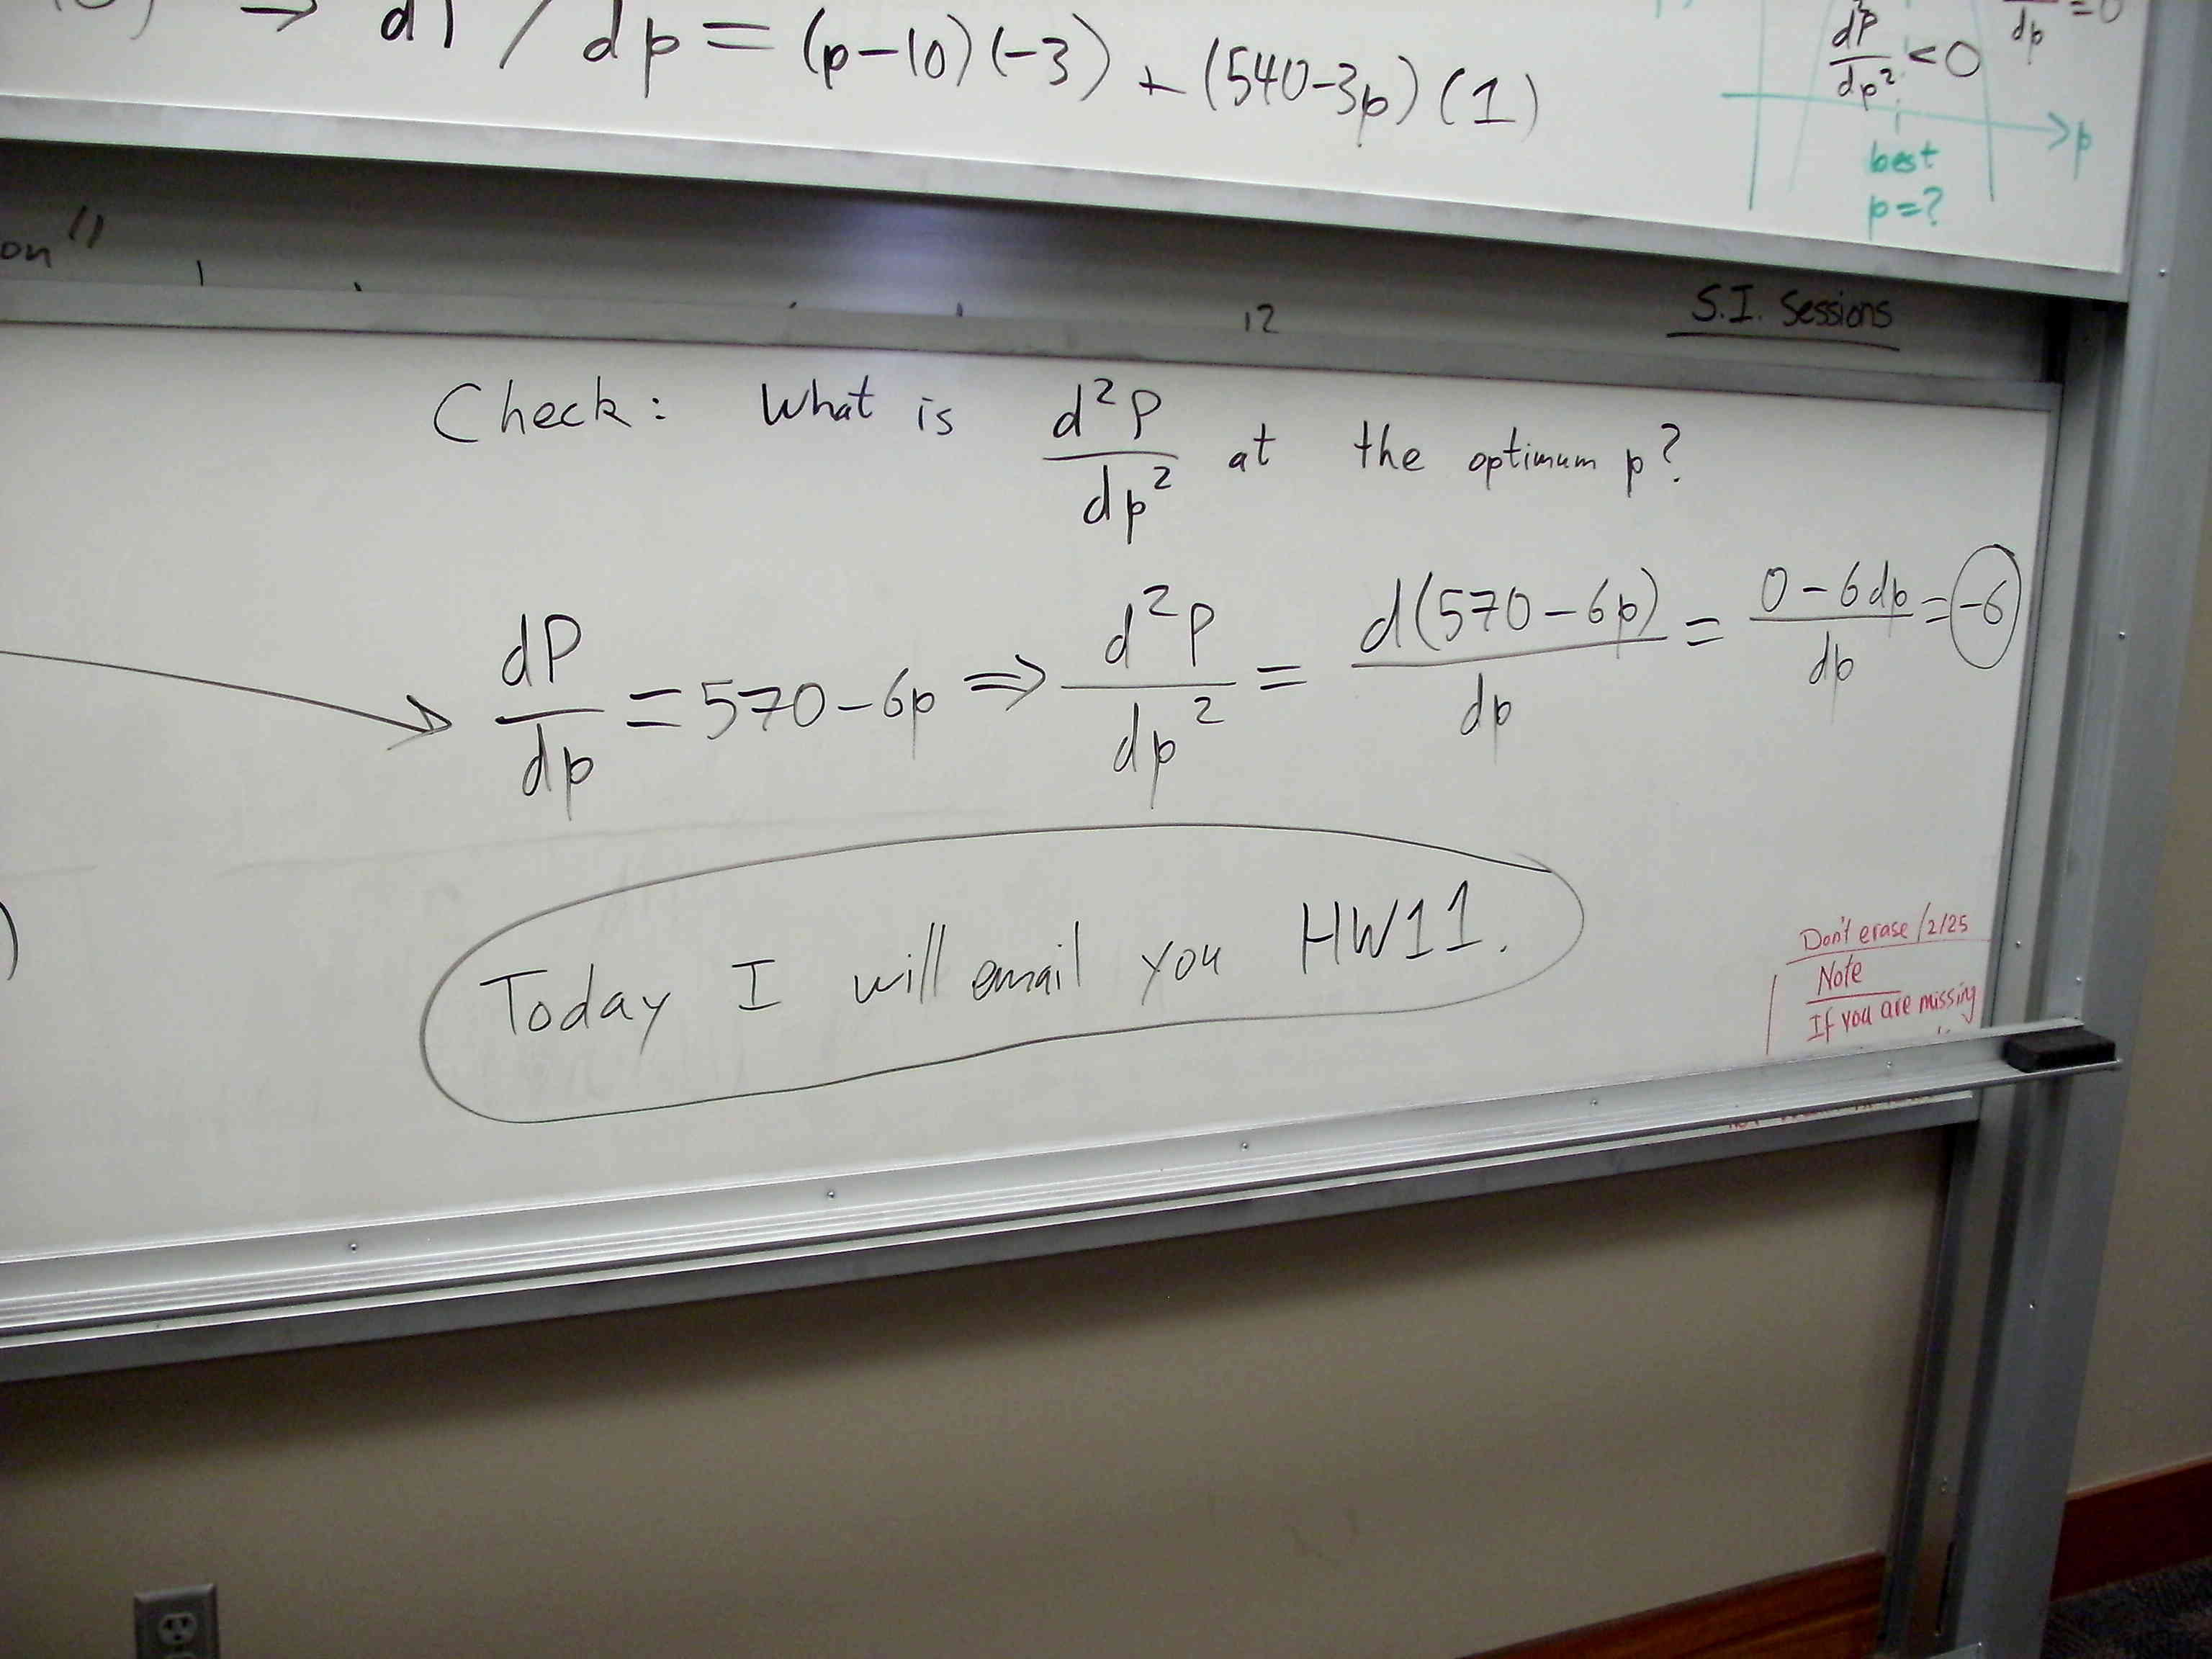 dP/dp = (p-10)(-3) + (540-3p)(1)
d²P/dp² < 0
dp = 0
p
best
p=?
on"
12
S.I. Sessions
Check: What is d²P/dp² at the optimum p?
dP/dp = 570-6p ⇒ d²P/dp² = d(570-6p)/dp = 0-6dp/dp = -6
Today I will email you HW11.
Don't erase /2/25
Note
If you are missing